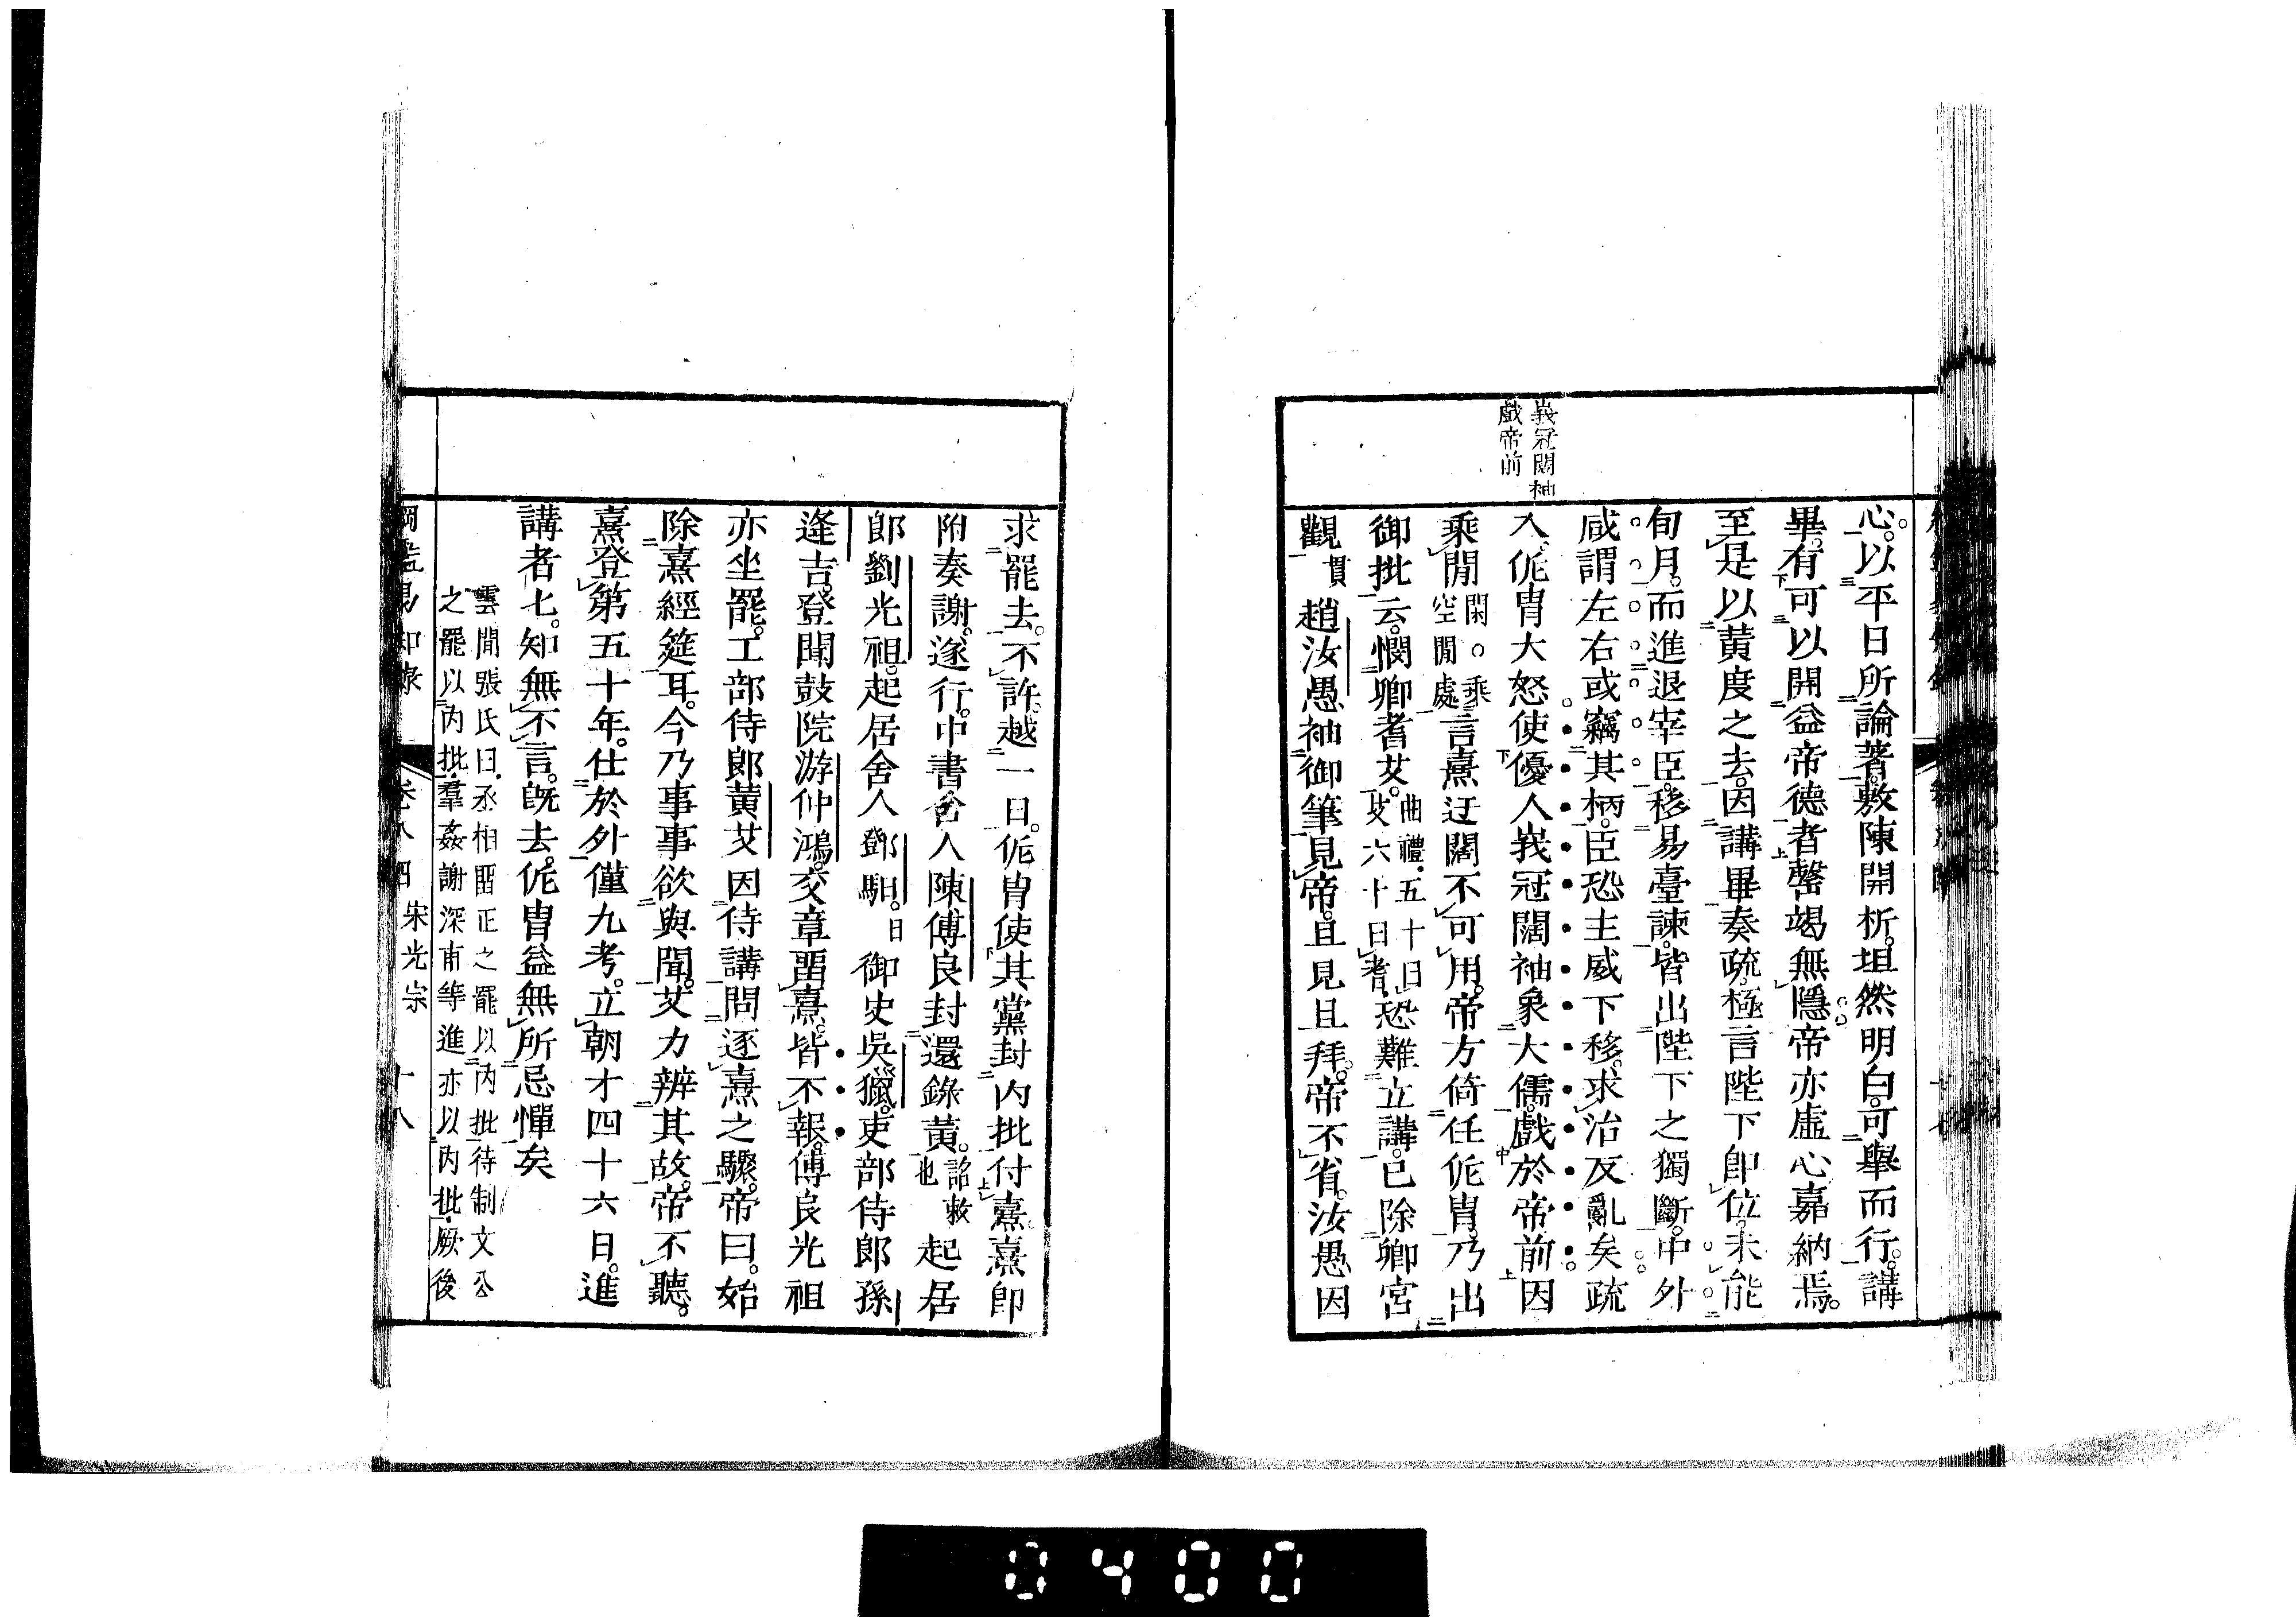 峩冠闊袖
戲帝前
心。以平日所論著。敷陳開析。坦然明白。可舉而行。講
畢。有可以開益帝德者。罄竭無隱。帝亦虛心嘉納焉。
至是以黃度之去。因講畢奏疏。極言陛下卽位。未能
旬月。而進退宰臣。移易臺諫。皆出陛下之獨斷。中外
咸謂左右或竊其柄。臣恐主威下移。求治反亂矣疏
入。侂冑大怒使優人峩冠闊袖象大儒。戲於帝前因
乘閒閑。乘空閒處言熹迂闊不可用。帝方倚任侂冑。乃出
御批云。憫卿耆艾。曲禮。五十曰艾六十曰耆恐難立講。已除卿宮
觀貫趙汝愚袖御筆見帝。且見且拜。帝不省。汝愚因
求罷去。不許。越一日。侂冑使其黨封內批付熹。熹卽
附奏謝。遂行。中書舍人陳傅良封還錄黃。詔敕也起居
郎劉光祖。起居舍人鄧馹。日御史吳獵。吏部侍郎孫
逢吉。登聞鼓院游仲鴻。交章畱熹。皆不報。傅良光祖
亦坐罷。工部侍郎黃艾因侍講問逐熹之驟。帝曰。始
除熹經筵耳。今乃事事欲與聞。艾力辨其故。帝不聽。
熹登第五十年。仕於外僅九考。立朝才四十六日。進
講者七。知無不言。旣去。侂冑益無所忌憚矣
雲間張氏曰。丞相畱正之罷以內批待制文公
之罷以內批。羣姦謝深甫等進亦以內批。厥後
綱鑑易知錄 卷八四 宋光宗 十八